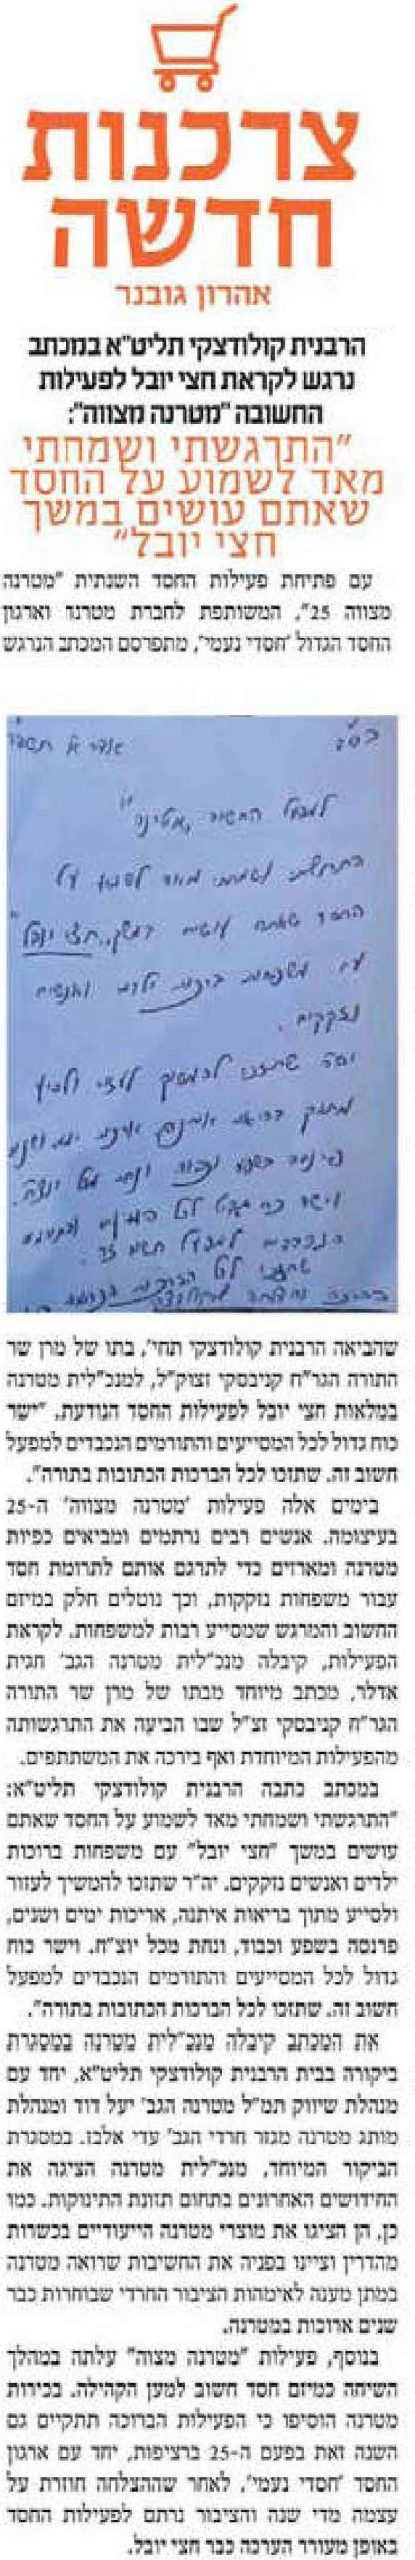 צרכנות
חדשה
אהרון גובנר
הרבנית קולודצקי תליט"א במכתב
נרגש לקראת חצי יובל לפעילות
החשובה "מטרנה מצווה":
"התרגשתי ושמחתי
מאד לשמוע על החסד
שאתם עושים במשך
חצי יובל"
עם פתיחת פעילות החסד השנתית "מטרנה
מצווה 25", המשותפת לחברת מטרנה וארגון
החסד הגדול 'חסדי נעמי', מתפרסם המכתב הנרגש
בס"ד
אדר א
למפעל החשוב
התרגשתי ושמחתי מאד לשמוע על
החסד שאתם עושים במשך "חצי יובל"
עם משפחות ברוכות ילדים ואנשים
נזקקים.
יה"ר שתזכו להמשיך לעזור ולסייע
מתוך בריאות איתנה אריכות ימים ושנים
פרנסה בשפע וכבוד ונחת מכל יוצ"ח.
וישר כח גדול לכל המסייעים והתורמים
הנכבדים למפעל חשוב זה.
שתזכו לכל הברכות
שהביאה הרבנית קולודצקי תחי', בתו של מרן שר
התורה הגר"ח קניבסקי זצוק"ל, למנכ"לית מטרנה
במלאות חצי יובל לפעילות החסד הנודעת. "ישר
כוח גדול לכל המסייעים והתורמים הנכבדים למפעל
חשוב זה. שתזכו לכל הברכות הכתובות בתורה".
בימים אלה פעילות 'מטרנה מצווה' ה-25
בעיצומה. אנשים רבים נרתמים ומביאים כפיות
מטרנה ומארזים כדי לתרגם אותם לתרומת חסד
עבור משפחות נזקקות, וכך נוטלים חלק במיזם
החשוב והמרגש שמסייע רבות למשפחות. לקראת
הפעילות, קיבלה מנכ"לית מטרנה הגב' חגית
אדלר, מכתב מיוחד מבתו של מרן שר התורה
הגר"ח קניבסקי זצ"ל שבו הביעה את התרגשותה
מהפעילות המיוחדת ואף בירכה את המשתתפים.
במכתב כתבה הרבנית קולודצקי תליט"א:
"התרגשתי ושמחתי מאד לשמוע על החסד שאתם
עושים במשך "חצי יובל" עם משפחות ברוכות
ילדים ואנשים נזקקים. יה"ר שתזכו להמשיך לעזור
ולסייע מתוך בריאות איתנה, אריכות ימים ושנים,
פרנסה בשפע וכבוד, ונחת מכל יוצ"ח. וישר כוח
גדול לכל המסייעים והתורמים הנכבדים למפעל
חשוב זה. שתזכו לכל הברכות הכתובות בתורה".
את המכתב קיבלה מנכ"לית מטרנה במסגרת
ביקורה בבית הרבנית קולודצקי תליט"א, יחד עם
מנהלת שיווק תמ"ל מטרנה הגב' יעל דוד ומנהלת
מותג מטרנה מגזר חרדי הגב' עדי אלבז. במסגרת
הביקור המיוחד, מנכ"לית מטרנה הציגה את
החידושים האחרונים בתחום תזונת התינוקות. כמו
כן, הן הציגו את מוצרי מטרנה הייעודיים בכשרות
מהדרין וציינו בפניה את החשיבות שרואה מטרנה
במתן מענה לאימהות הציבור החרדי שבוחרות כבר
שנים ארוכות במטרנה.
בנוסף, פעילות "מטרנה מצוה" עלתה במהלך
השיחה כמיזם חסד חשוב למען הקהילה. בכירות
מטרנה הוסיפו כי הפעילות הברוכה תתקיים גם
השנה זאת בפעם ה-25 ברציפות, יחד עם ארגון
החסד 'חסדי נעמי', לאחר שההצלחה חוזרת על
עצמה מדי שנה והציבור נרתם לפעילות החסד
באופן מעורר הערכה כבר חצי יובל.